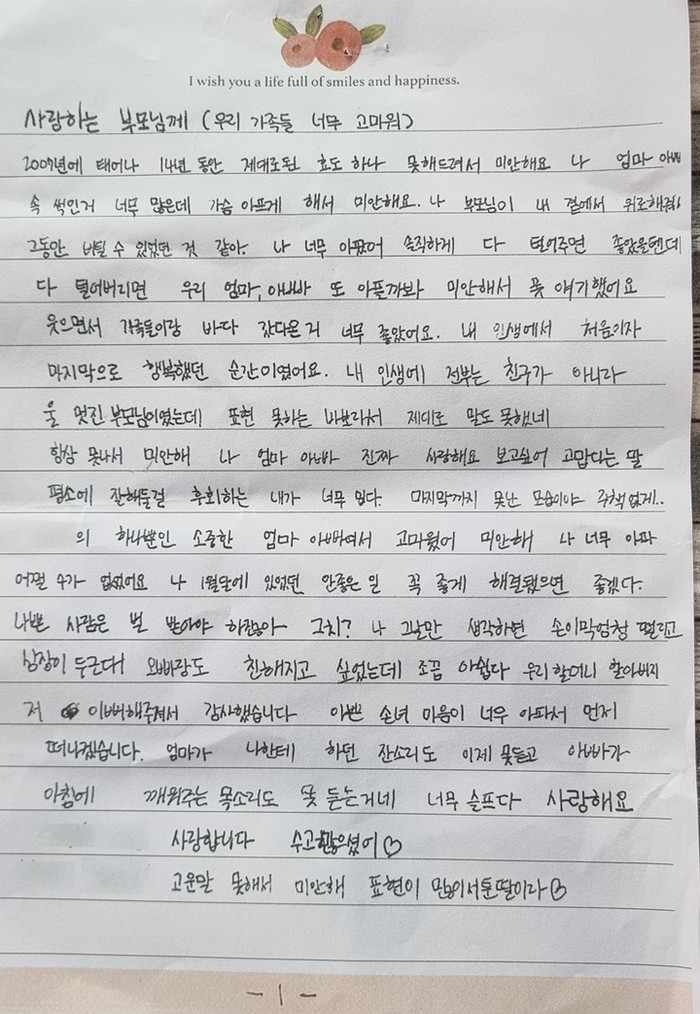 I wish you a life full of smiles and happiness.
사랑하는 부모님께 (우리 가족들 너무 고마워)
2007년에 태어나 14년 동안 제대로된 효도 하나 못해드려서 미안해요 나 엄마 아빠
속 썩인거 너무 많은데 가슴 아프게 해서 미안해요. 나 부모님이 내 곁에서 위로해줘서
그동안 버틸 수 있었던 것 같아. 나 너무 아팠어 솔직하게 다 털어주면 좋았을텐데
다 털어버리면 우리 엄마, 아빠 또 아플까봐 미안해서 못 얘기했어요
웃으면서 가족들이랑 바다 갔다온거 너무 좋았어요. 내 인생에서 처음이자
마지막으로 행복했던 순간이였어요. 내 인생에 전부는 친구가 아니라
울 멋진 부모님이였는데 표현 못하는 바보라서 제대로 말도 못했네
항상 못나서 미안해 나 엄마 아빠 진짜 사랑해요 보고싶어 고맙다는 딸
평소에 잘해둘걸 후회하는 내가 너무 밉다. 마지막까지 못난 모습이야 주책없게..
의 하나뿐인 소중한 엄마 아빠여서 고마웠어 미안해 나 너무 아파
어쩔 수가 없었어요 나 1월달에 있었던 안좋은 일 꼭 좋게 해결됐으면 좋겠다.
나쁜 사람은 벌 받아야 하잖아 그치? 나 그날만 생각하면 손이막엄청 떨리고
심장이 두근대! 오빠랑도 친해지고 싶었는데 조금 아쉽다 우리할머니 할아버지
저 이뻐해주셔서 감사했습니다 이쁜 손녀 마음이 너무 아파서 먼저
떠나겠습니다. 엄마가 나한테 하던 잔소리도 이제 못듣고 아빠가
아침에 깨워주는 목소리도 못 듣는거네 너무 슬프다 사랑해요
사랑합니다 수고많으셨어♡
고운말 못해서 미안해 표현이 많이서툰딸이라♡
- 1 -